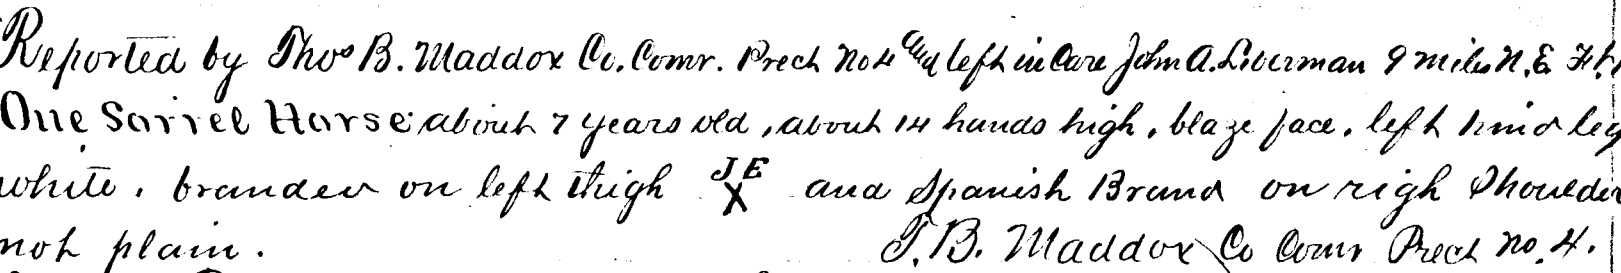 Reported by Thos B. Maddox Co. Comr. Prect No 4 and left in Care John A. Liverman 9 miles N.E. Ft.
One Sorrel Horse about 7 years old, about 14 hands high, blaze face, left hind leg
white, branded on left thigh JE X and Spanish Brand on righ Shoulder
not plain. T.B. Maddox Co Comr Prect No. 4.